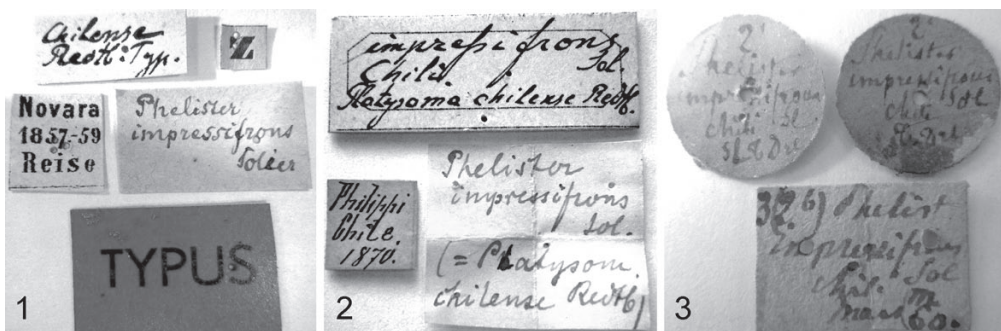 Chilense
Redtb: Typ.
Z
Novara
1857-59
Reise
Phelister
impressifrons
Solier
TYPUS
1
impressifrons
Sol.
Chili.
Platysoma chilense Redtb.
Philippi
Chile.
1870.
Phelister
impressifrons
Sol.
(= Platysom.
chilense Redtb)
2
2
Phelister
impressifrons
Chili Sl
2
Phelister
impressifrons
Sol
Chili
326) Phelist
impressifrons
Chil. Sol
3